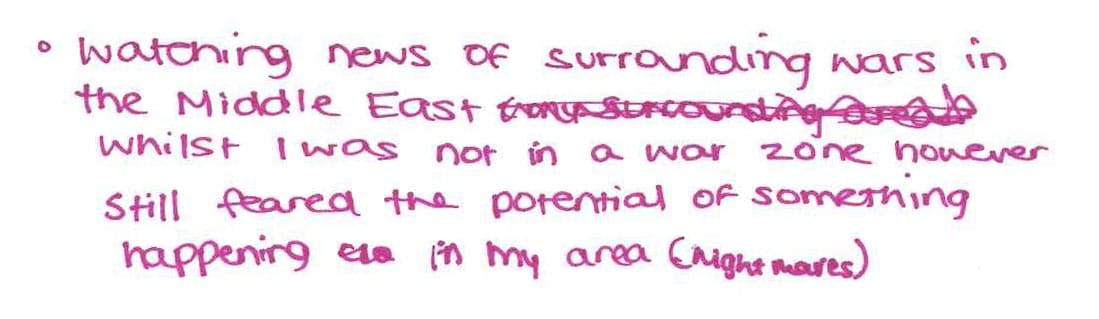 • Watching news of surrounding wars in
the Middle East
whilst I was not in a war zone however
still feared the potential of something
happening in my area (nightmares)